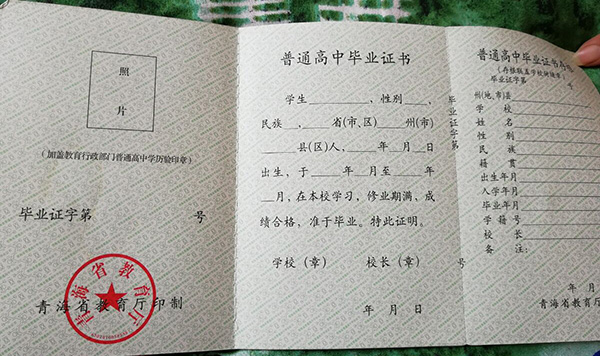 照
片
(加盖教育行政部门普通高中学历验印章)
毕业证字第 号
青海省教育厅印制
青海省教育厅
普通高中毕业证书
学生________,性别____,
民族__,____省(市、区)____州(市)
____县(区)人,____年__月__日
出生,于____年__月至____年
__月,在本校学习,修业期满、成
绩合格,准于毕业。特此证明。
学校(章) 校长(章)
年 月 日
毕业证字第
号
普通高中毕业证书存
毕业证字第 号
州(地、市)县
学 校
姓 名
性 别
民 族
籍 贯
出生年月
入学年月
毕业年月
学 籍 号
校 长
备 注:
年 月
青海省教育厅